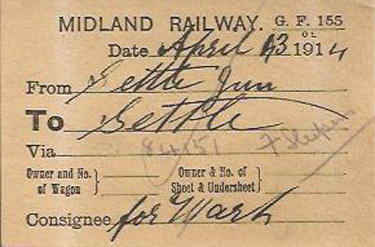 MIDLAND RAILWAY. G. F. 155
OL
Date April 13 1914
From Settle Jun
To Settle
Via
84151
Owner and No. of Wagon } Owner & No. of Sheet & Undersheet }
Consignee for Wash